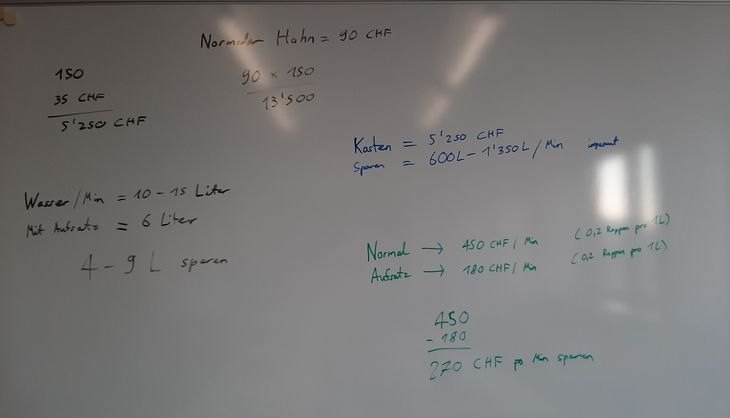 Normaler Hahn = 90 CHF
150
35 CHF
5'250 CHF
90 x 150
13'500
Kosten = 5'250 CHF
Sparen = 600L - 1'350L / Min insgesamt
Wasser/Min = 10 - 15 Liter
Mit Aufsatz = 6 Liter
4 - 9 L sparen
Normal → 450 CHF / Min (0,2 Rappen pro 1L)
Aufsatz → 180 CHF / Min (0,2 Rappen pro 1L)
450
- 180
270 CHF pro Min sparen